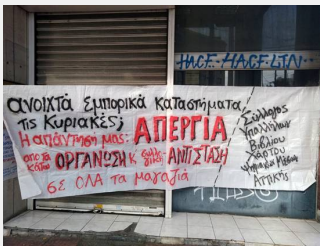 ανοιχτά εμπορικά καταστήματα
τις Κυριακές;
Η απάντησή μας: ΑΠΕΡΓΙΑ
από τα κάτω ΟΡΓΑΝΩΣΗ κ συλλογική ΑΝΤΙΣΤΑΣΗ
σε ΟΛΑ τα μαγαζιά
Σύλλογος
Υπαλλήλων
Βιβλίου
Χάρτου
Ψηφιακών Μέσων
Αττικής